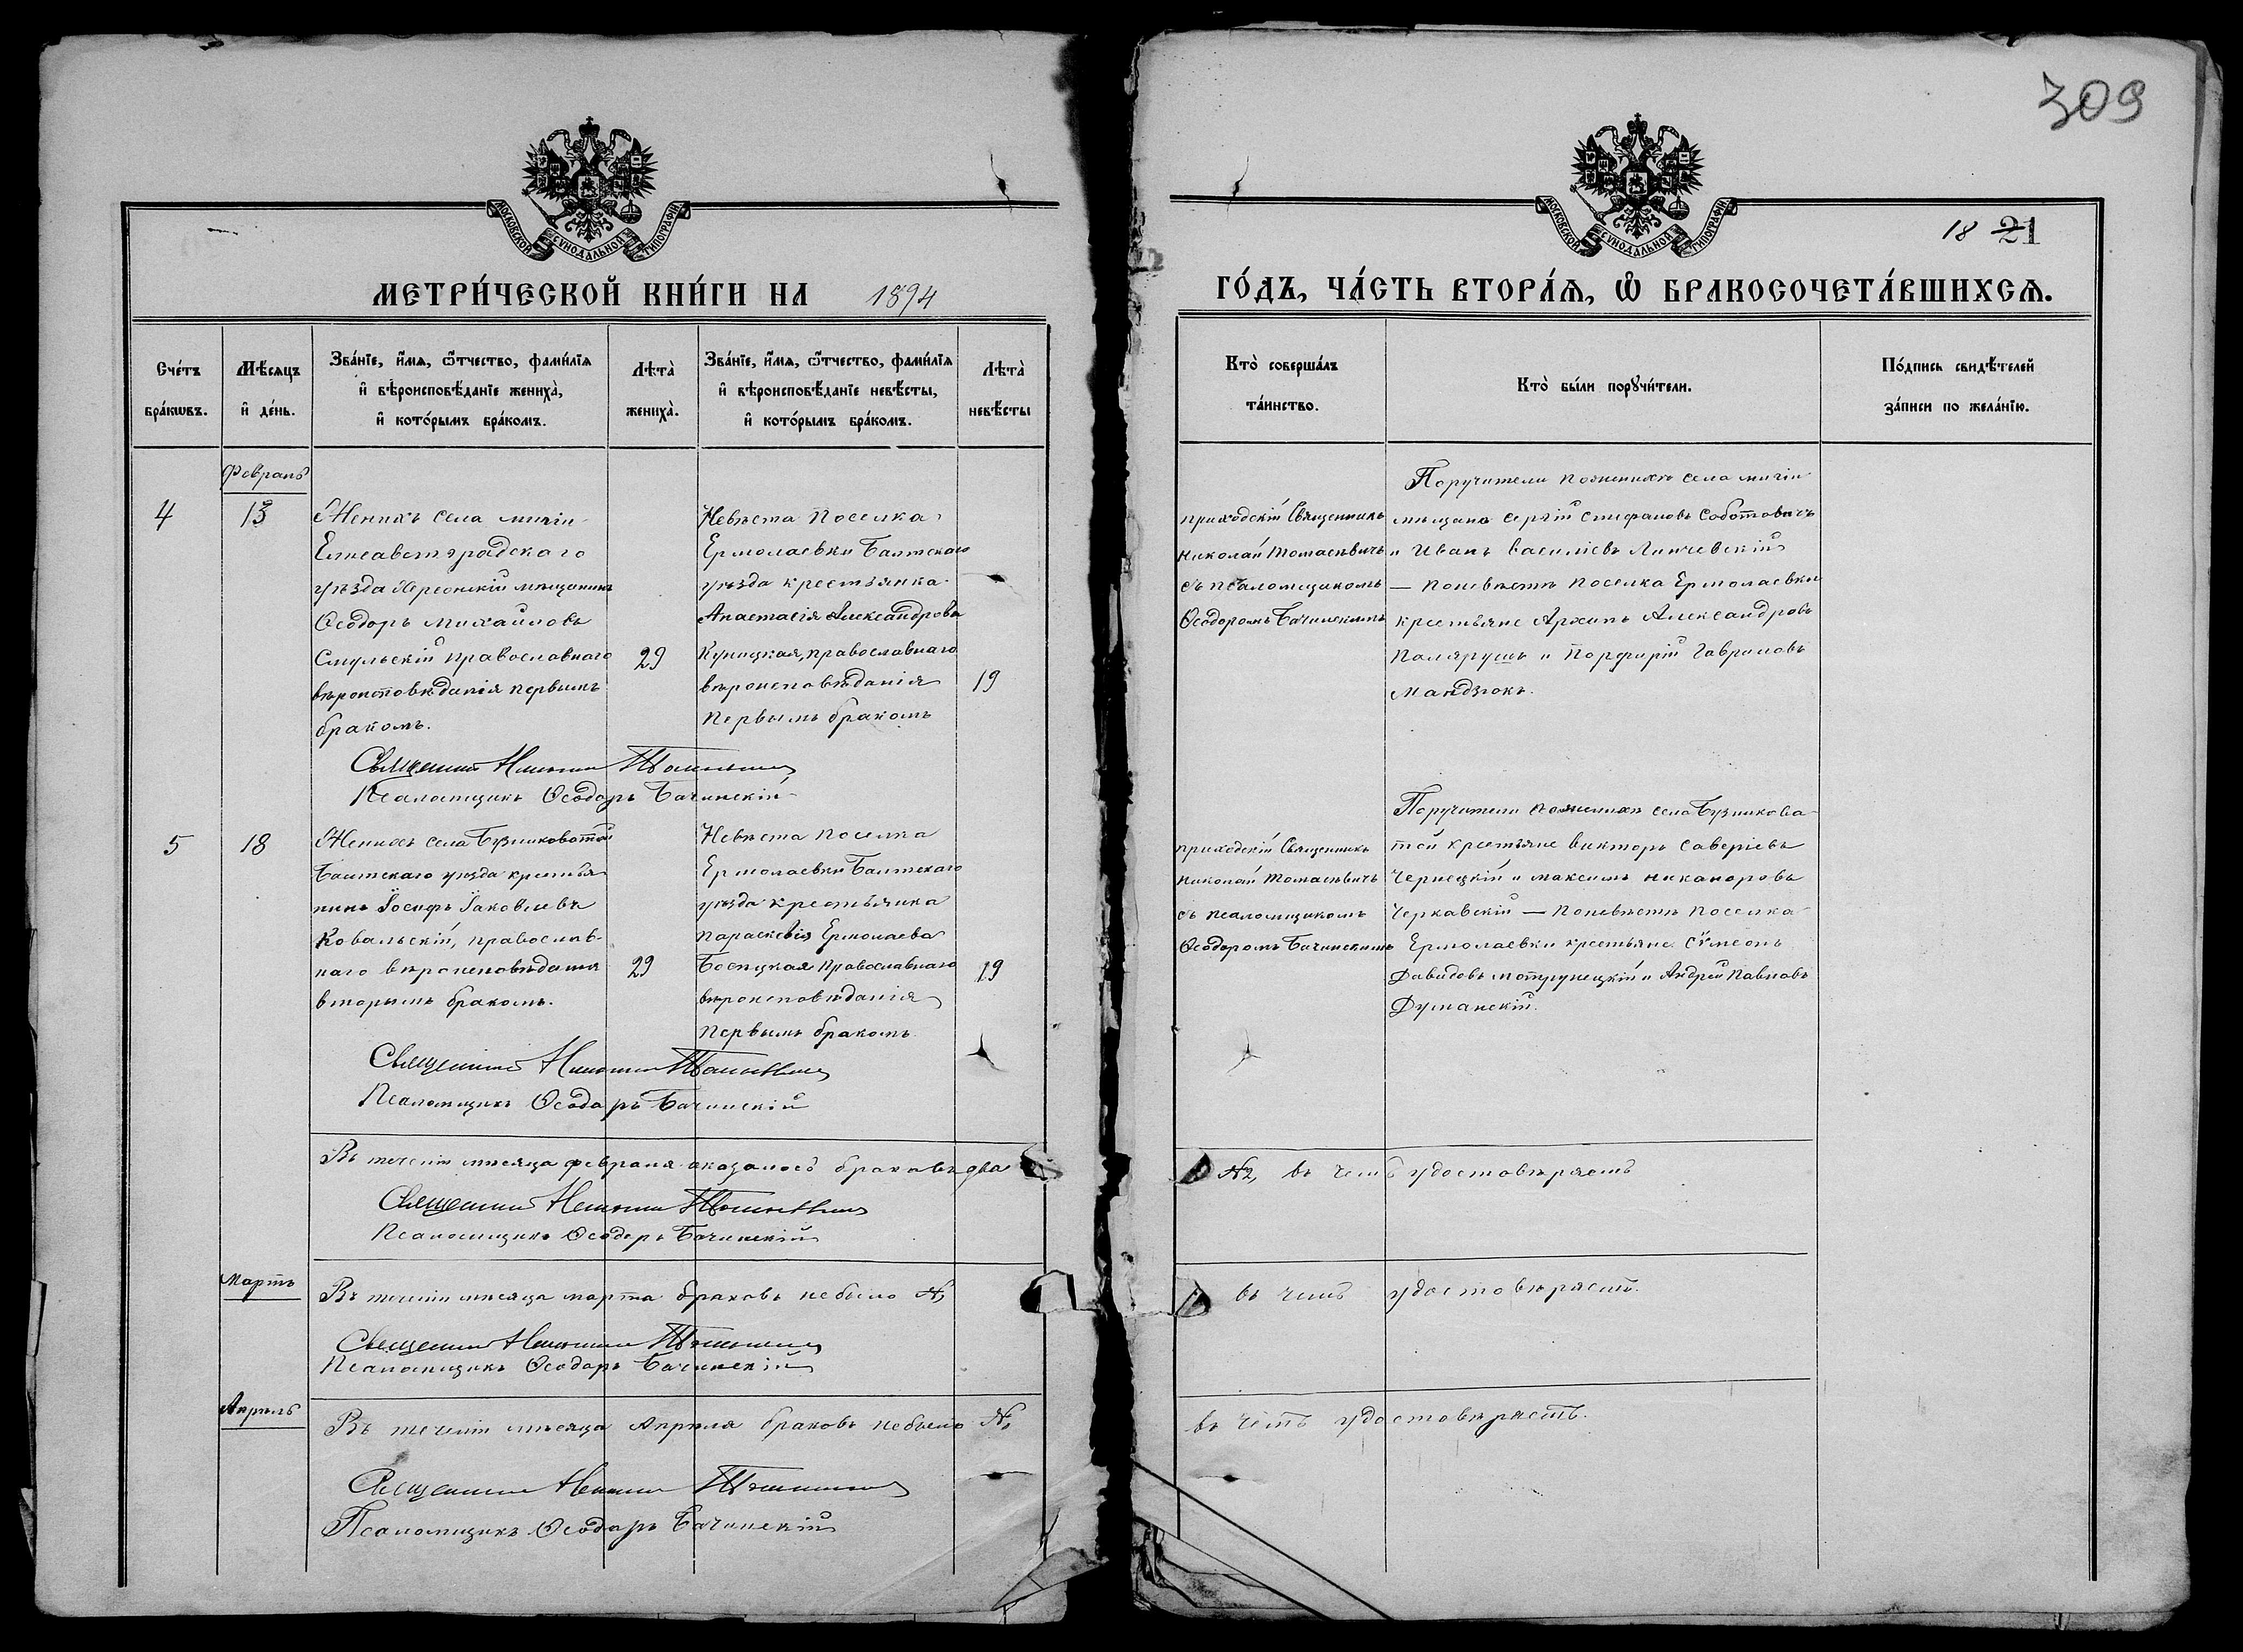 309
МОСКОВСКОЙ СѴНОДАЛЬНОЙ ТИПОГРАФІИ
МОСКОВСКОЙ СѴНОДАЛЬНОЙ ТИПОГРАФІИ
18 21
МЕТРИ́ЧЕСКОЙ КНИ́ГИ НА 1894
ГО́ДЪ, ЧА́СТЬ ВТОРА́Я, Ѿ БРАКОСОЧЕТА́ВШИХСЯ.
Сче́тъ
бра́кѡвъ.
Мѣ́сяцъ
и҆ де́нь.
Зва́нїе, и҆́мя, ѻ҆́тчество, фами́лїя
и҆ вѣроисповѣ́данїе жениха̀,
и҆ кото́рымъ бра́комъ.
Лѣта̀
жениха̀.
Зва́нїе, и҆́мя, ѻ҆́тчество, фами́лїя
и҆ вѣроисповѣ́данїе невѣ́сты,
и҆ кото́рымъ бра́комъ.
Лѣта̀
невѣ́сты
Кто̀ соверша́лъ
та́инство.
Кто̀ бы́ли порꙋчи́тели.
По́дпись свидѣ́телей
за́писи по жела́нїю.
Февраль
4
13
Женихъ села мигіи
Елисаветградскаго
уѣзда Херсонскій мѣщанинъ
Ѳеодоръ Михайловъ
Смульскій православнаго
вѣроисповѣданія первымъ
бракомъ.
29
Невѣста поселка
Ермолаевки Балтскаго
уѣзда крестьянка
Анастасія Александрова
Куницкая, православнаго
вѣроисповѣданія
первымъ бракомъ
19
приходскій Священникъ
Николай Томасѣвичъ
съ псаломщикомъ
Ѳеодоромъ Бачинскимъ
Поручители по женихѣ села мигіи
мѣщане Сергій Стефановъ Соботовичъ
и Иванъ Василіевъ Линчевскій
— по невѣстѣ поселка Ермолаевки
крестьяне Архипъ Александровъ
Палярушъ и Порфирій Гавриловъ
Мандзюкъ.
Священникъ Николай Томасѣвичъ
Псаломщикъ Ѳеодоръ Бачинскій
5
18
Женихъ села Бузниковатой
Балтскаго уѣзда крестья
нинъ Іосифъ Іаковлевъ
Ковальскій, православ-
наго вѣроисповѣданія
вторымъ бракомъ.
29
Невѣста поселка
Ермолаевки Балтскаго
уѣзда крестьянка
Параскевія Ермолаева
Босицкая православнаго
вѣроисповѣданія
первымъ бракомъ.
19
приходскій Священникъ
Николай Томасѣвичъ
съ псаломщикомъ
Ѳеодоромъ Бачинскимъ
Поручители по женихѣ села Бузникова-
той крестьяне Викторъ Саверіевъ
Чернецкій и Максимъ Никаноровъ
Черкавскій — По невѣстѣ поселка
Ермолаевки крестьяне Сѵмеонъ
Давидовъ Мотрунецкій и Андрей Павловъ
Думанскій.
Священникъ Николай Томасѣвичъ
Псаломщикъ Ѳеодоръ Бачинскій
Въ теченіи мѣсяца февраля оказалось браковъ два
№2, въ чемъ удостовѣряемъ
Священникъ Николай Томасѣвичъ
Псаломщикъ Ѳеодоръ Бачинскій
Мартъ
Въ теченіи мѣсяца марта браковъ небыло №,
въ чемъ удостовѣряемъ.
Священникъ Николай Томасѣвичъ
Псаломщикъ Ѳеодоръ Бачинскій
Апрѣль
Въ теченіи мѣсяца Апрѣля браковъ небыло №,
въ чемъ удостовѣряемъ.
Священникъ Николай Томасѣвичъ
Псаломщикъ Ѳеодоръ Бачинскій